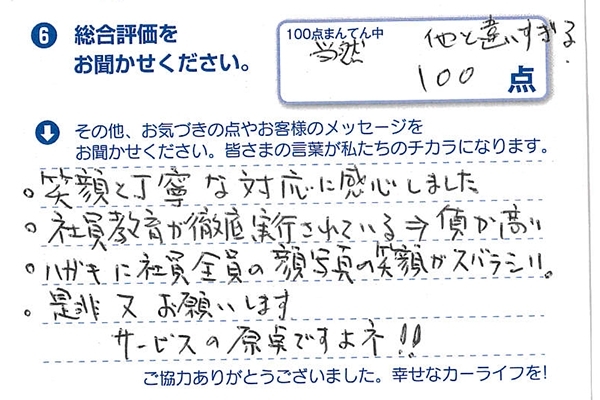 6 総合評価を
お聞かせください。
100点まんてん中
当然 他と違いすぎる
100 点
その他、お気づきの点やお客様のメッセージを
お聞かせください。皆さまの言葉が私たちのチカラになります。
。笑顔と丁寧な対応に感心しました
。社員教育が徹底実行されている⇒価が高い
。ハガキに社員全員の顔写真の笑顔がスバラシイ。
。是非又お願いします
サービスの原点ですよネ!!
ご協力ありがとうございました。幸せなカーライフを!